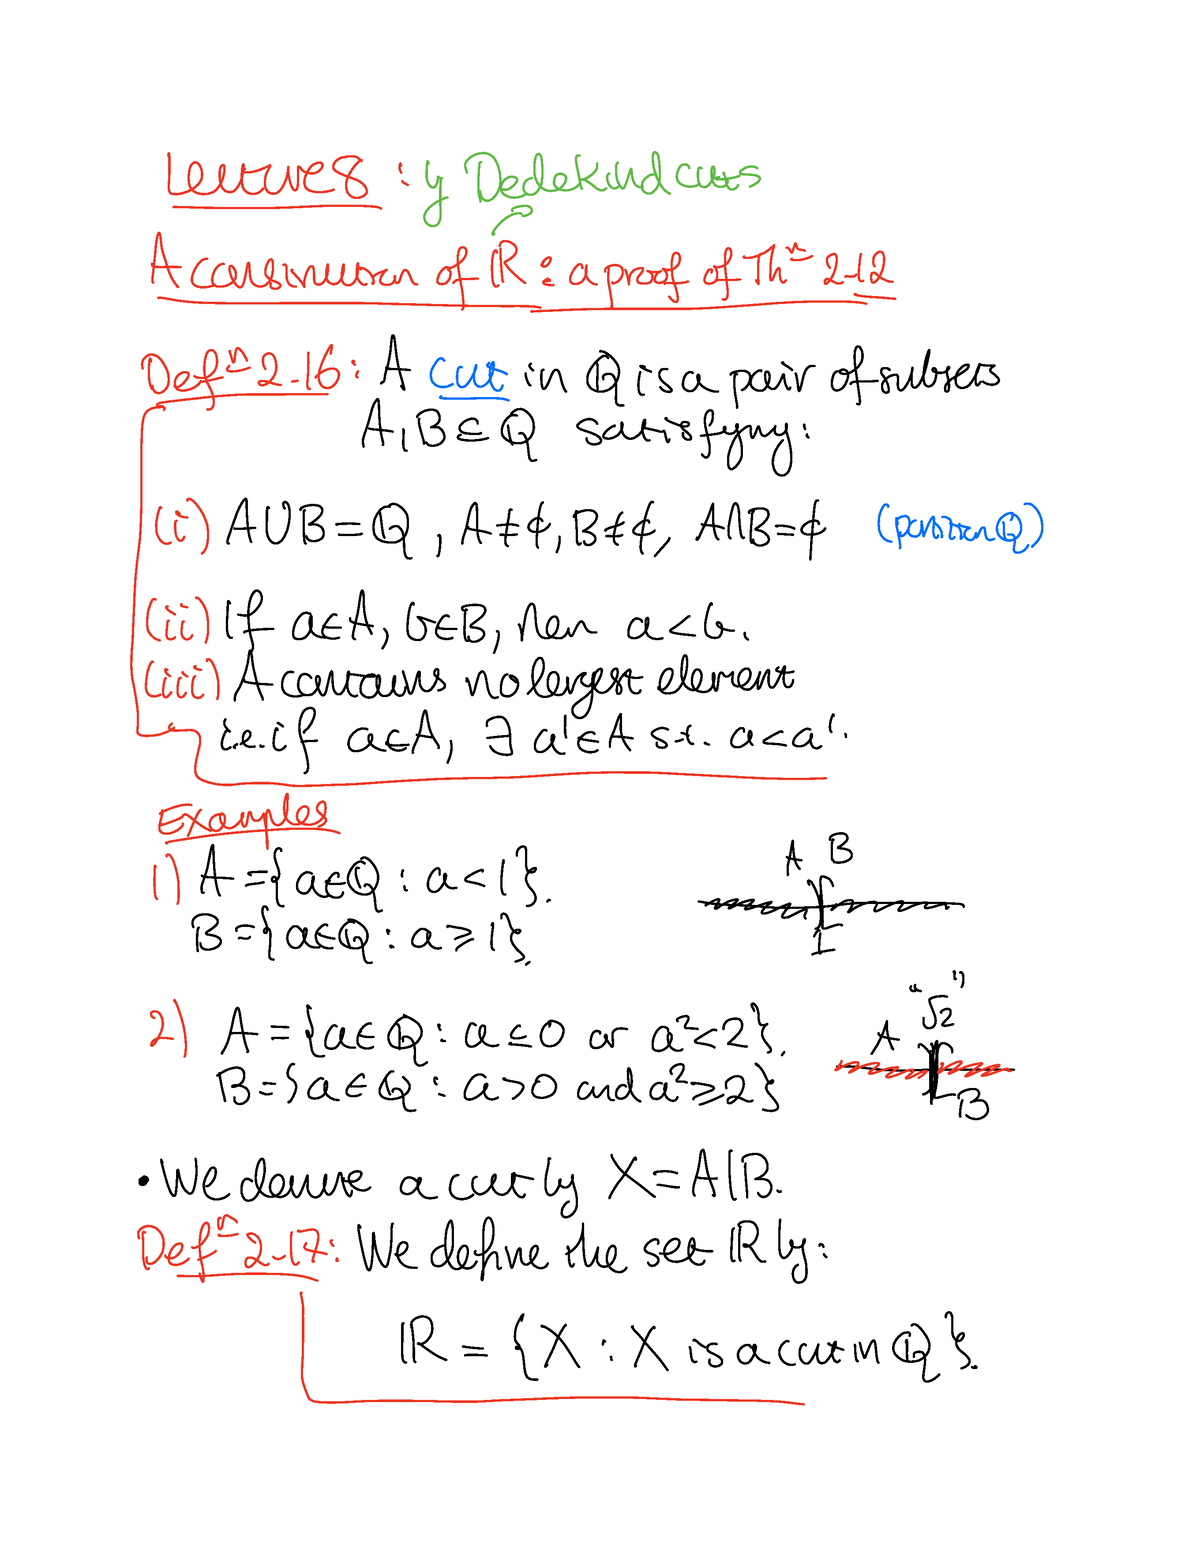 Lecture 8 : by Dedekind cuts
A construction of ℝ : a proof of Thⁿ 2.12
Defⁿ 2.16 : A cut in ℚ is a pair of subsets
A, B ⊆ ℚ satisfying :
(i) A∪B = ℚ , A ≠ ∅, B ≠ ∅, A∩B = ∅ (partition ℚ)
(ii) If a∈A, b∈B, then a < b.
(iii) A contains no largest element
i.e. if a∈A, ∃ a'∈A s.t. a < a'.
Examples
1) A = {a∈ℚ : a < 1}.
B = {a∈ℚ : a ≥ 1}.
A B
1
2) A = {a∈ℚ : a ≤ 0 or a² < 2}.
B = {a∈ℚ : a > 0 and a² ≥ 2}
"√2"
A
B
• We denote a cut by X = A|B.
Defⁿ 2.17 : We define the set ℝ by :
ℝ = {X : X is a cut in ℚ}.